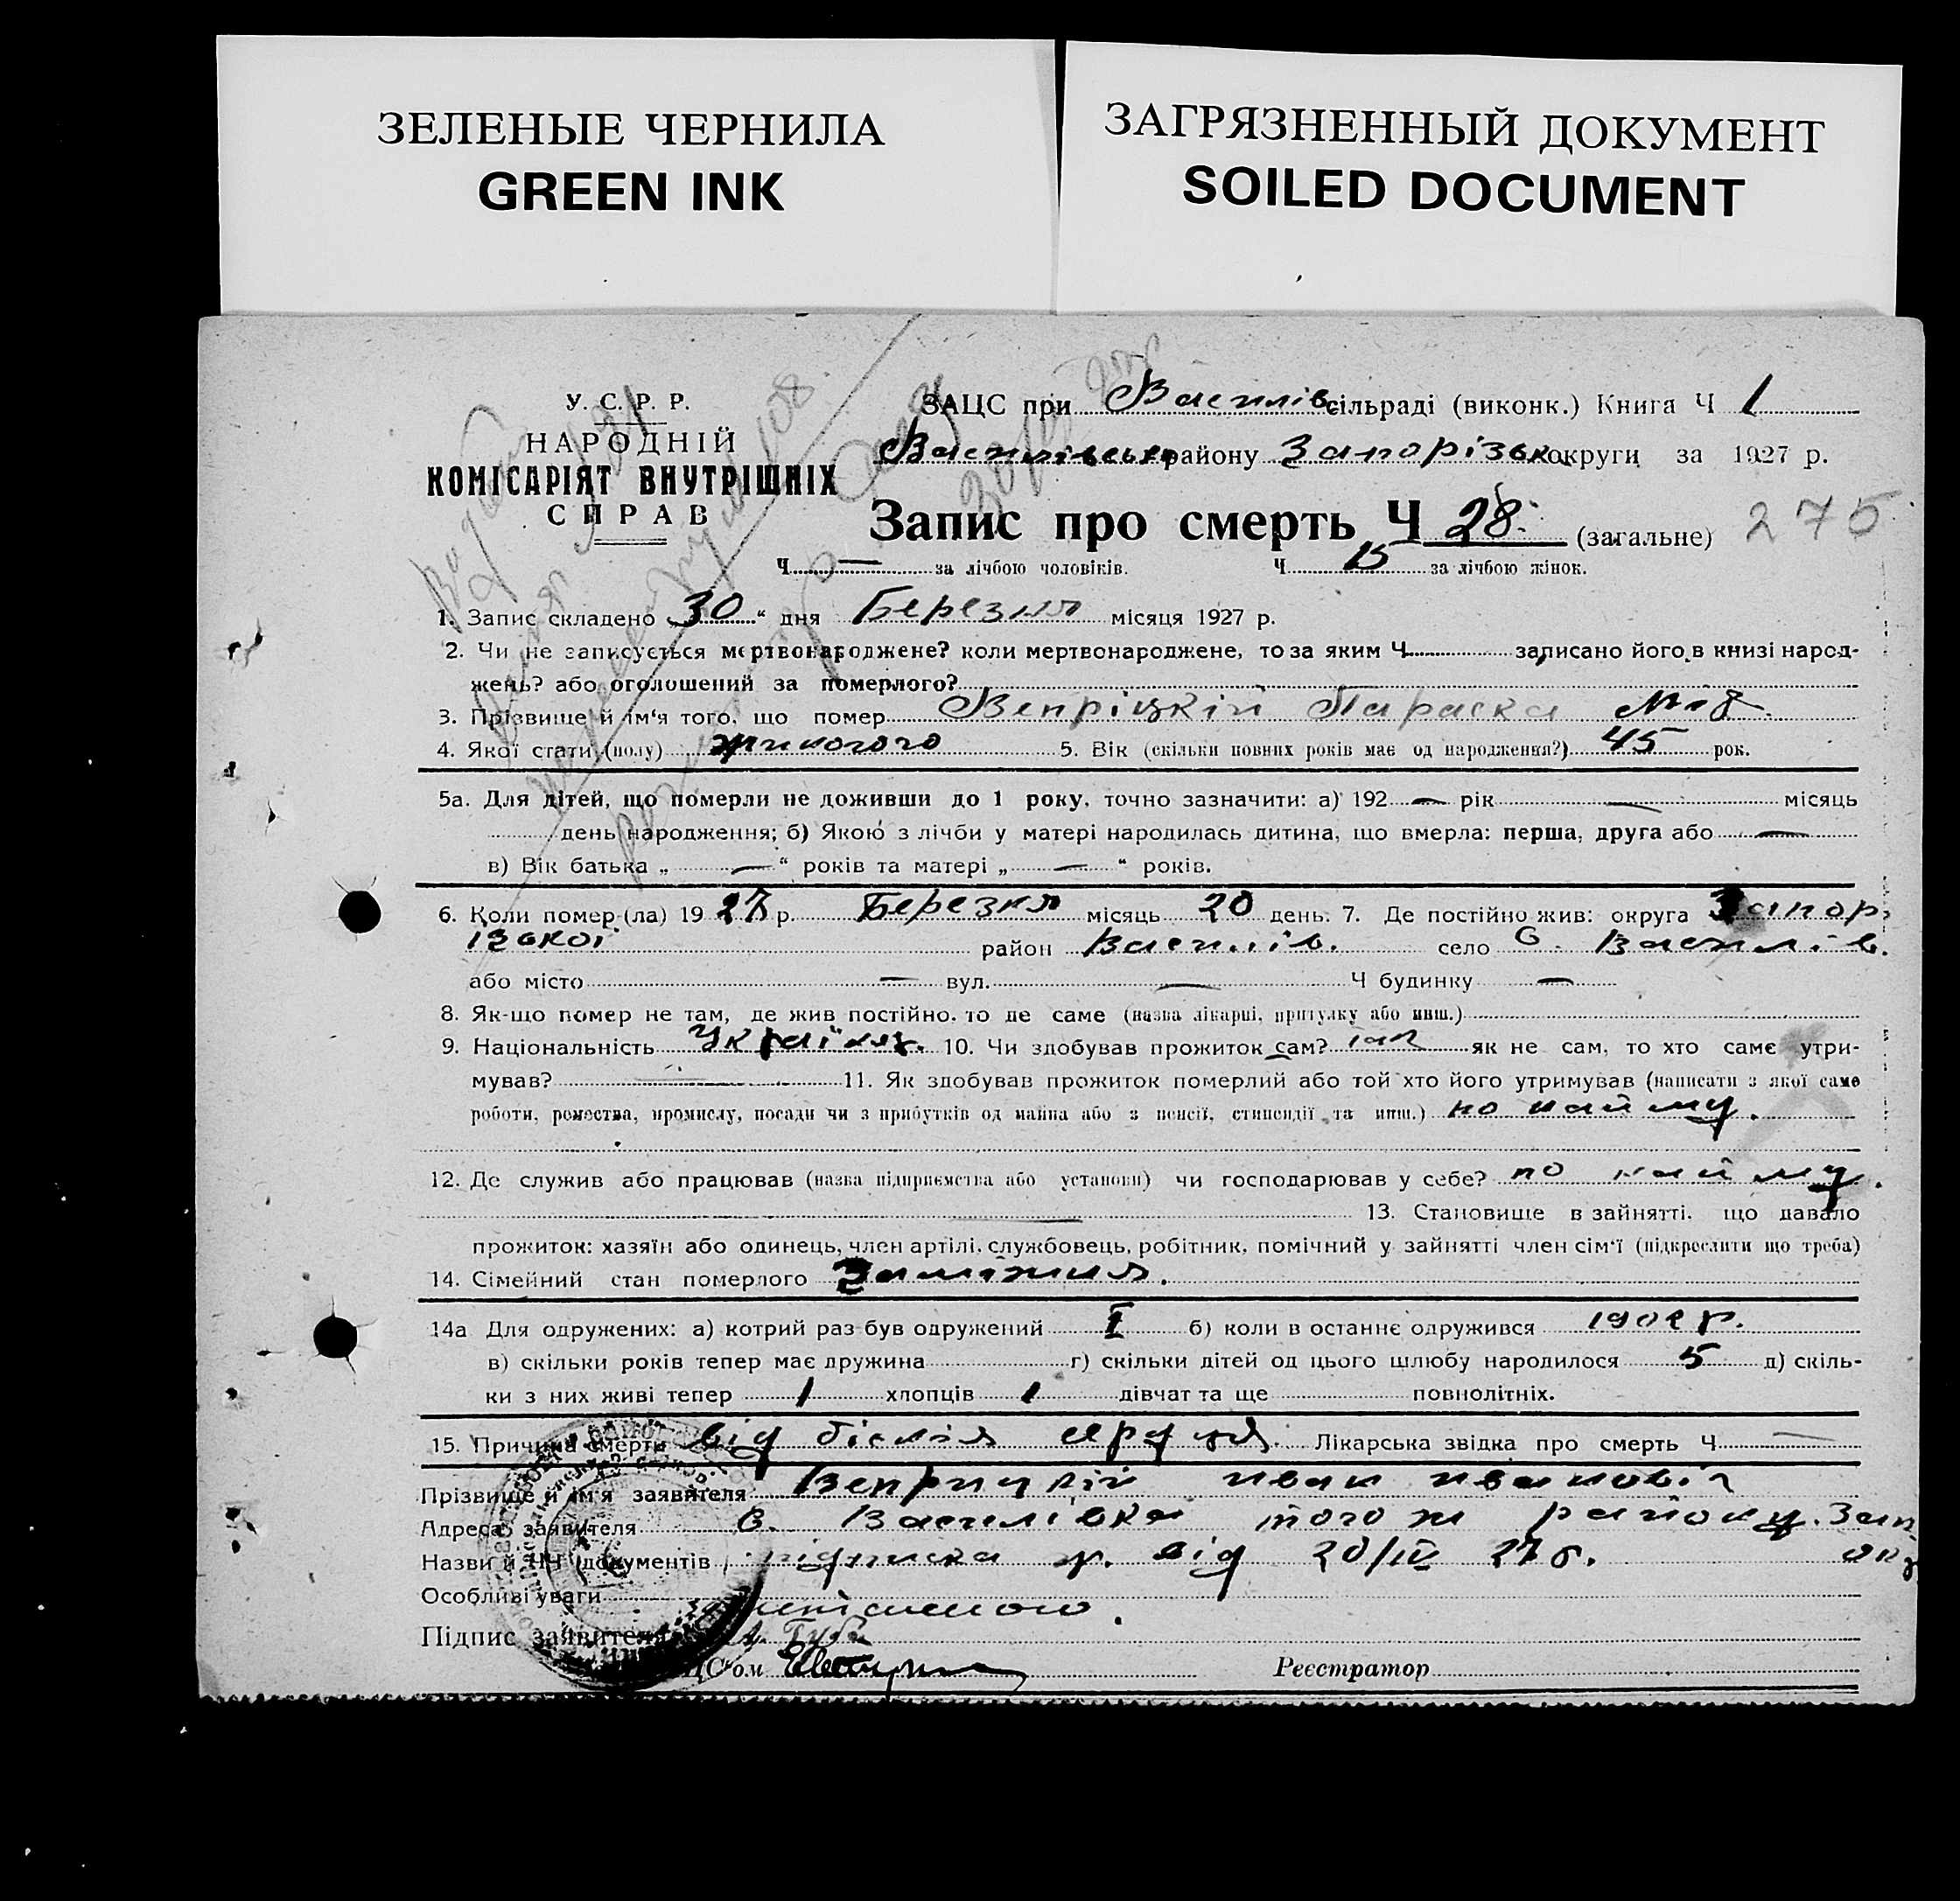 ЗЕЛЕНЫЕ ЧЕРНИЛА
GREEN INK
ЗАГРЯЗНЕННЫЙ ДОКУМЕНТ
SOILED DOCUMENT
У. С. Р. Р.
НАРОДНІЙ
КОМІСАРІЯТ ВНУТРІШНІХ
СПРАВ
ЗАЦС при Василів. сільраді (виконк.) Книга Ч 1
Василівська району Запорізько округи за 1927 р.
Запис про смерть Ч 28 (загальне) 275
Ч — за лічбою чоловіків. Ч 15 за лічбою жінок.
1. Запис складено „30“ дня Березня місяця 1927 р.
2. Чи не записується мертвонароджене? коли мертвонароджене, то за яким Ч. записано його в книзі народ-
жень? або оголошений за померлого?
3. Прізвище й ім'я того, що помер Вепріцкій Параска
4. Якої статі (полу) жиночого 5. Вік (скільки повних років має од народження?) 45 рок.
5а. Для дітей, що померли не доживши до 1 року, точно зазначити: а) 192 — рік — місяць
день народження; б) Якою з лічби у матері народилась дитина, що вмерла: перша, друга або —
в) Вік батька „ — “ років та матері „ — “ років.
6. Коли помер (ла) 1927 р. Березня місяць 20 день. 7. Де постійно жив: округа Запор-
ізької район Василів. село С. Василів.
або місто — вул. — Ч будинку —
8. Як-що помер не там, де жив постійно, то де саме (назва лікарні, притулку або инш.)
9. Національність Українка. 10. Чи здобував прожиток сам? так як не сам, то хто саме утри-
мував? — 11. Як здобував прожиток померлий або той хто його утримував (написати з якої саме
роботи, ремества, промислу, посади чи з прибутків од майна або з пенсії, стипендії та инш.) по найму.
12. Де служив або працював (назва підприємства або установи) чи господарював у себе? по найму.
— 13. Становище в зайнятті, що давало
прожиток: хазяїн або одинець, член артілі, службовець, робітник, помічний у зайнятті член сім'ї (підкреслити що треба)
14. Сімейний стан померлого Заміжня.
14а Для одружених: а) котрий раз був одружений I б) коли в останнє одружився 1902 р.
в) скільки років тепер має дружина г) скільки дітей од цього шлюбу народилося 5 д) скіль-
ки з них живі тепер 1 хлопців 1 дівчат та ще повнолітніх.
15. Причина смерти від Лікарська звідка про смерть Ч —
Прізвище й ім'я заявителя Веприцкій Иван Иванов
Адреса заявителя С. Василівка того ж району. Зап
Назви й ЧЧ документів підписка від 20/IV 27
Особливі уваги
Підпис заявителя
Реєстратор